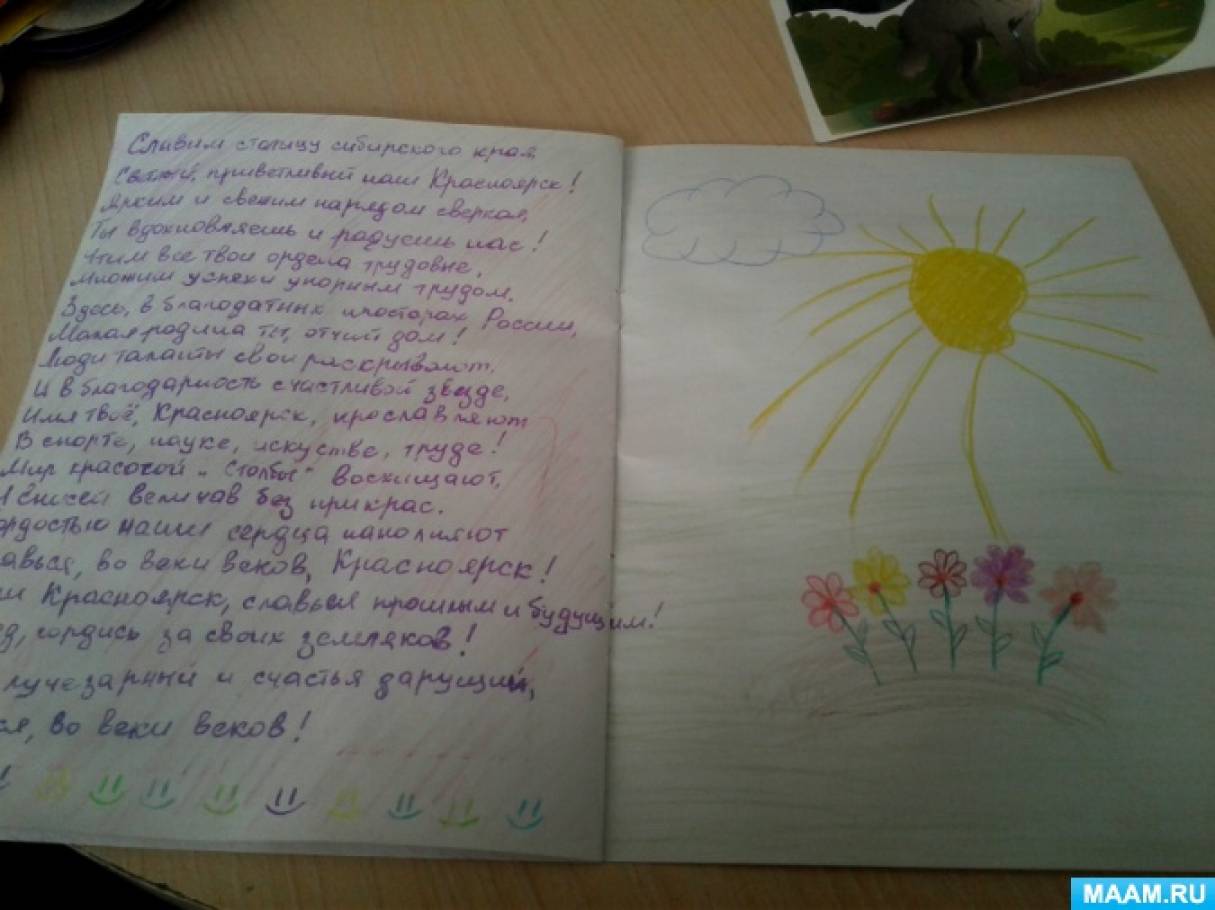 Славим столицу сибирского края
Светлый, приветливый наш Красноярск!
Ярким и свежим нарядом сверкая,
Ты вдохновляешь и радуешь нас!
Чтим все твои ордена трудовые,
Множим успехи упорным трудом.
Здесь, в благодатных просторах России,
Малая родина ты, отчий дом!
Люди таланты свои раскрывают,
И в благодарность счастливой звезде,
Имя твоё, Красноярск, прославляют
В спорте, науке, искустве, труде!
Мир красотой "Столбы" восхищают,
Енисей величав без прикрас.
ордостью наши сердца наполняют
авься, во веки веков, Красноярск!
ш Красноярск, славься прошлым и будущим!
д, гордись за своих земляков!
лучезарный и счастья дарущий,
ся, во веки веков!
MAAM.RU